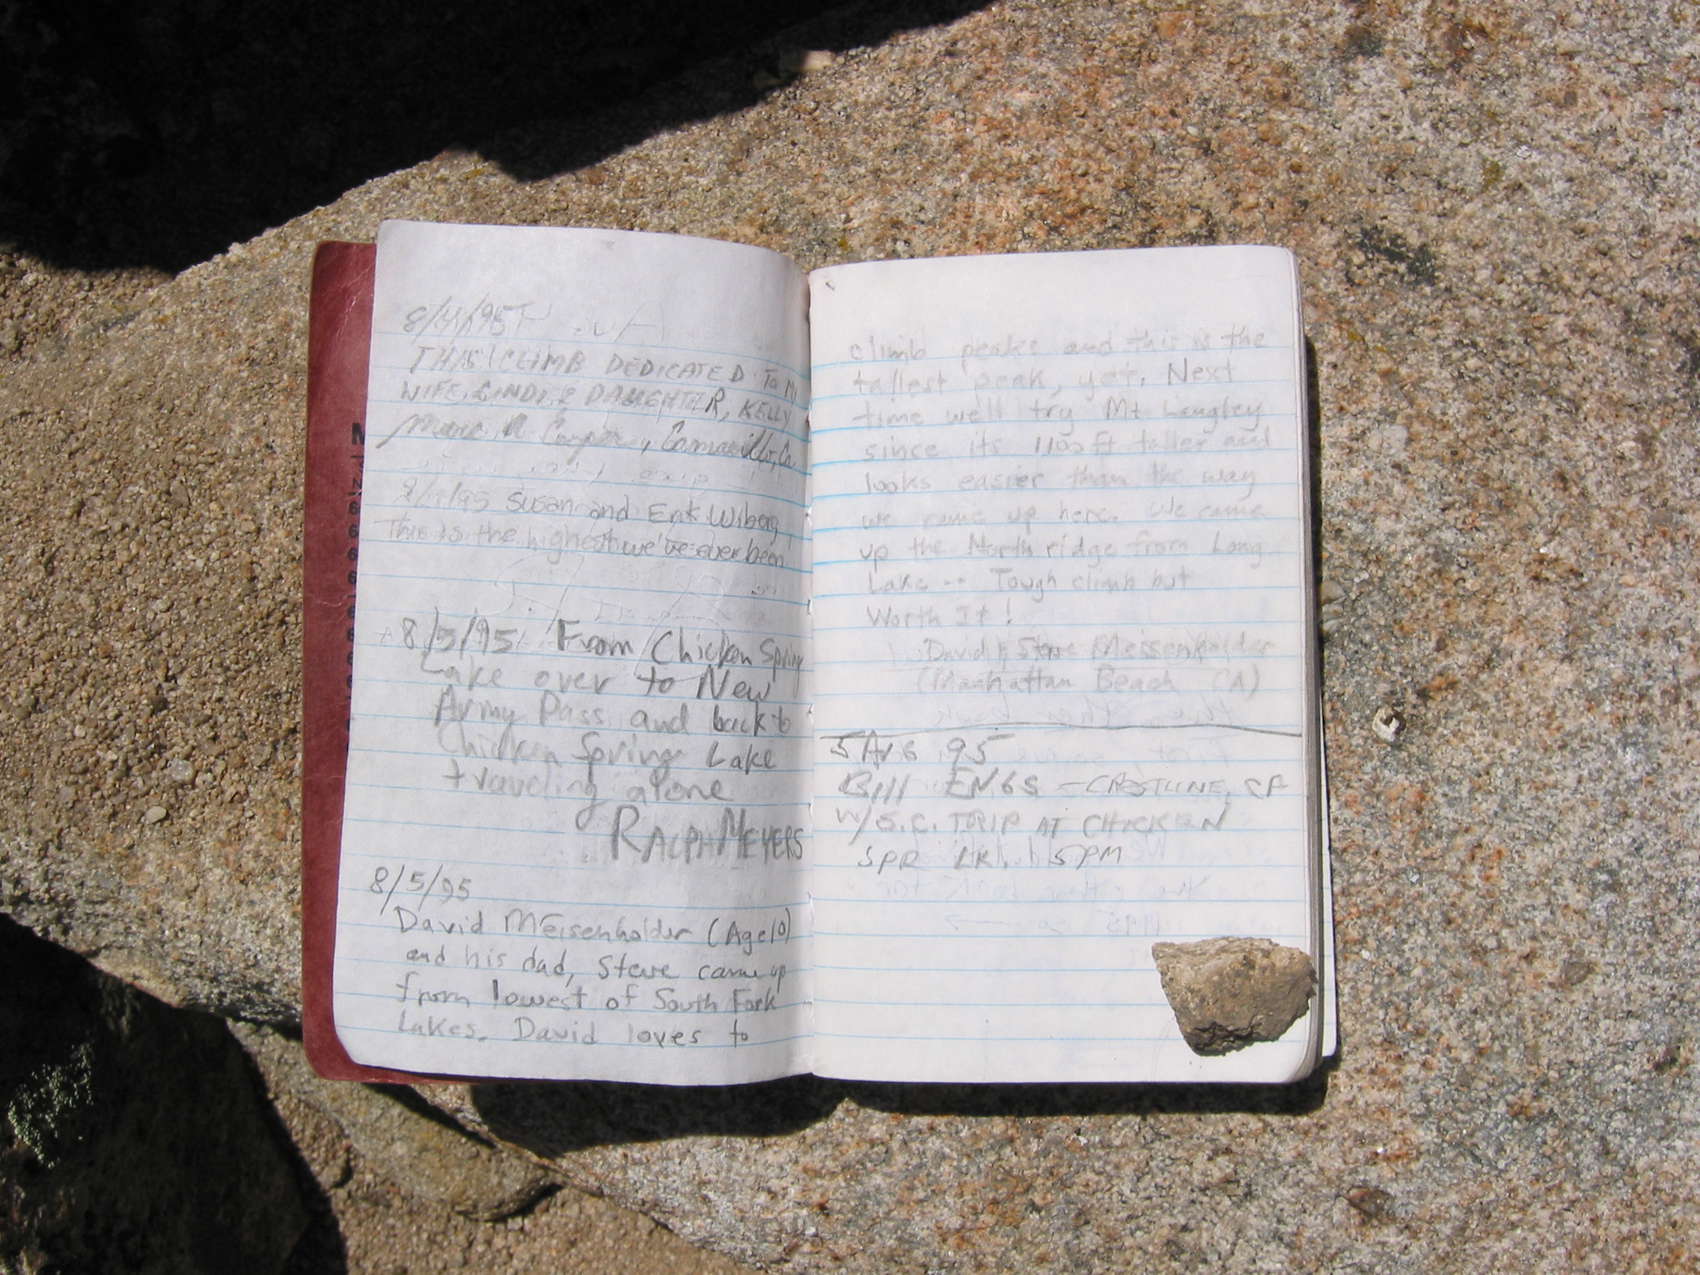 8/4/95
THIS CLIMB DEDICATED TO MY
WIFE, CINDI & DAUGHTER, KELLY
Camarillo, Ca
Susan and Erik Wiberg
This is the highest we've ever been
8/5/95 From Chicken Spring
Lake over to New
Army Pass and back to
Chicken Spring Lake
traveling alone
RALPH MEYERS
8/5/95
David Meisenholder (Age 10)
and his dad, Steve came up
from lowest of South Fork
Lakes. David loves to
climb peaks and this is the
tallest peak, yet. Next
time we'll try Mt Langley
since its 1100 ft taller and
looks easier than the way
we came up here. We came
up the North ridge from Long
Lake -- Tough climb but
Worth It!
David & Steve Meisenholder
(Manhattan Beach CA)
5 AUG 95
Bill ENGS - CA
W/S.C. TRIP AT CHICKEN
SPR LK. 5PM